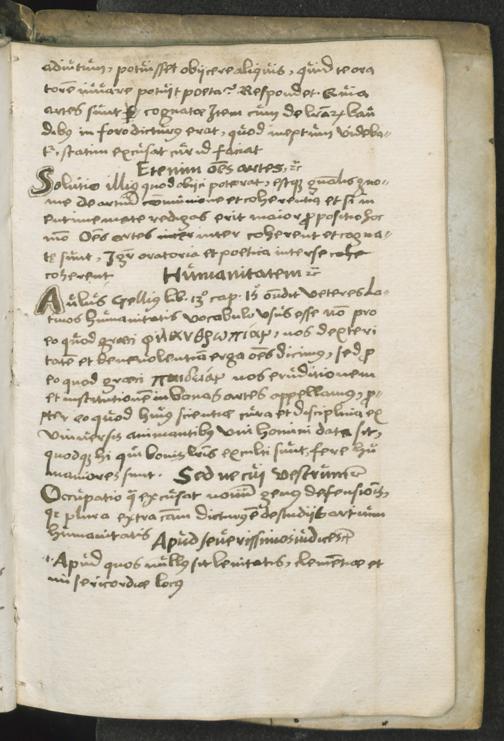 adiutum, potuisset obijcere aliquis, quid te ora
torē iuuare potuit poeta? Respondet. Quia
artes sunt cognatæ Item cum de lrarz lau
dibus in foro dicturus erat, quod ineptum videba-
tr, statim excusat cur id faciat
Etenim oēs artes, rc
Solutio illius quod obijci poterat, estque gnalis gno-
me de artium cōmunione et coherentia et si in
entimemate redigas erit maior propositio hoc
mō Oēs artes inter coherent et cogna-
tę sunt, Igr oratoria et poetica inter se cohe
coherent Humanitatem rc
Aulus Gellius lib. 13º cap. 15 ōndit veteres La-
tinos humanitatis vocabulo usus esse nō pro
eo quod græci φιλανθρωπίαν, nos dexteri
tatē et beneuolentiam erga oēs dicimus, sed p
eo quod græci παιδείαν nos eruditionem
et institutionē in bonas artes appellamus, pro-
pter eo quod huius scientiæ cura et disciplina ex
vniuersis animantibus vni homini data sit,
quodque hi qui bonis lris exculti sunt, fere hu
maniores sunt. Sed ne cui vestrum rc
Occupatio q excusat nouum genus defensionis,
qr plura extra cām dicturus ē de studijs artium
humanitatis Apud seuerissimos iudices rc
Apud quos nullus sit lenitatis, clementiæ et
misericordiæ locus